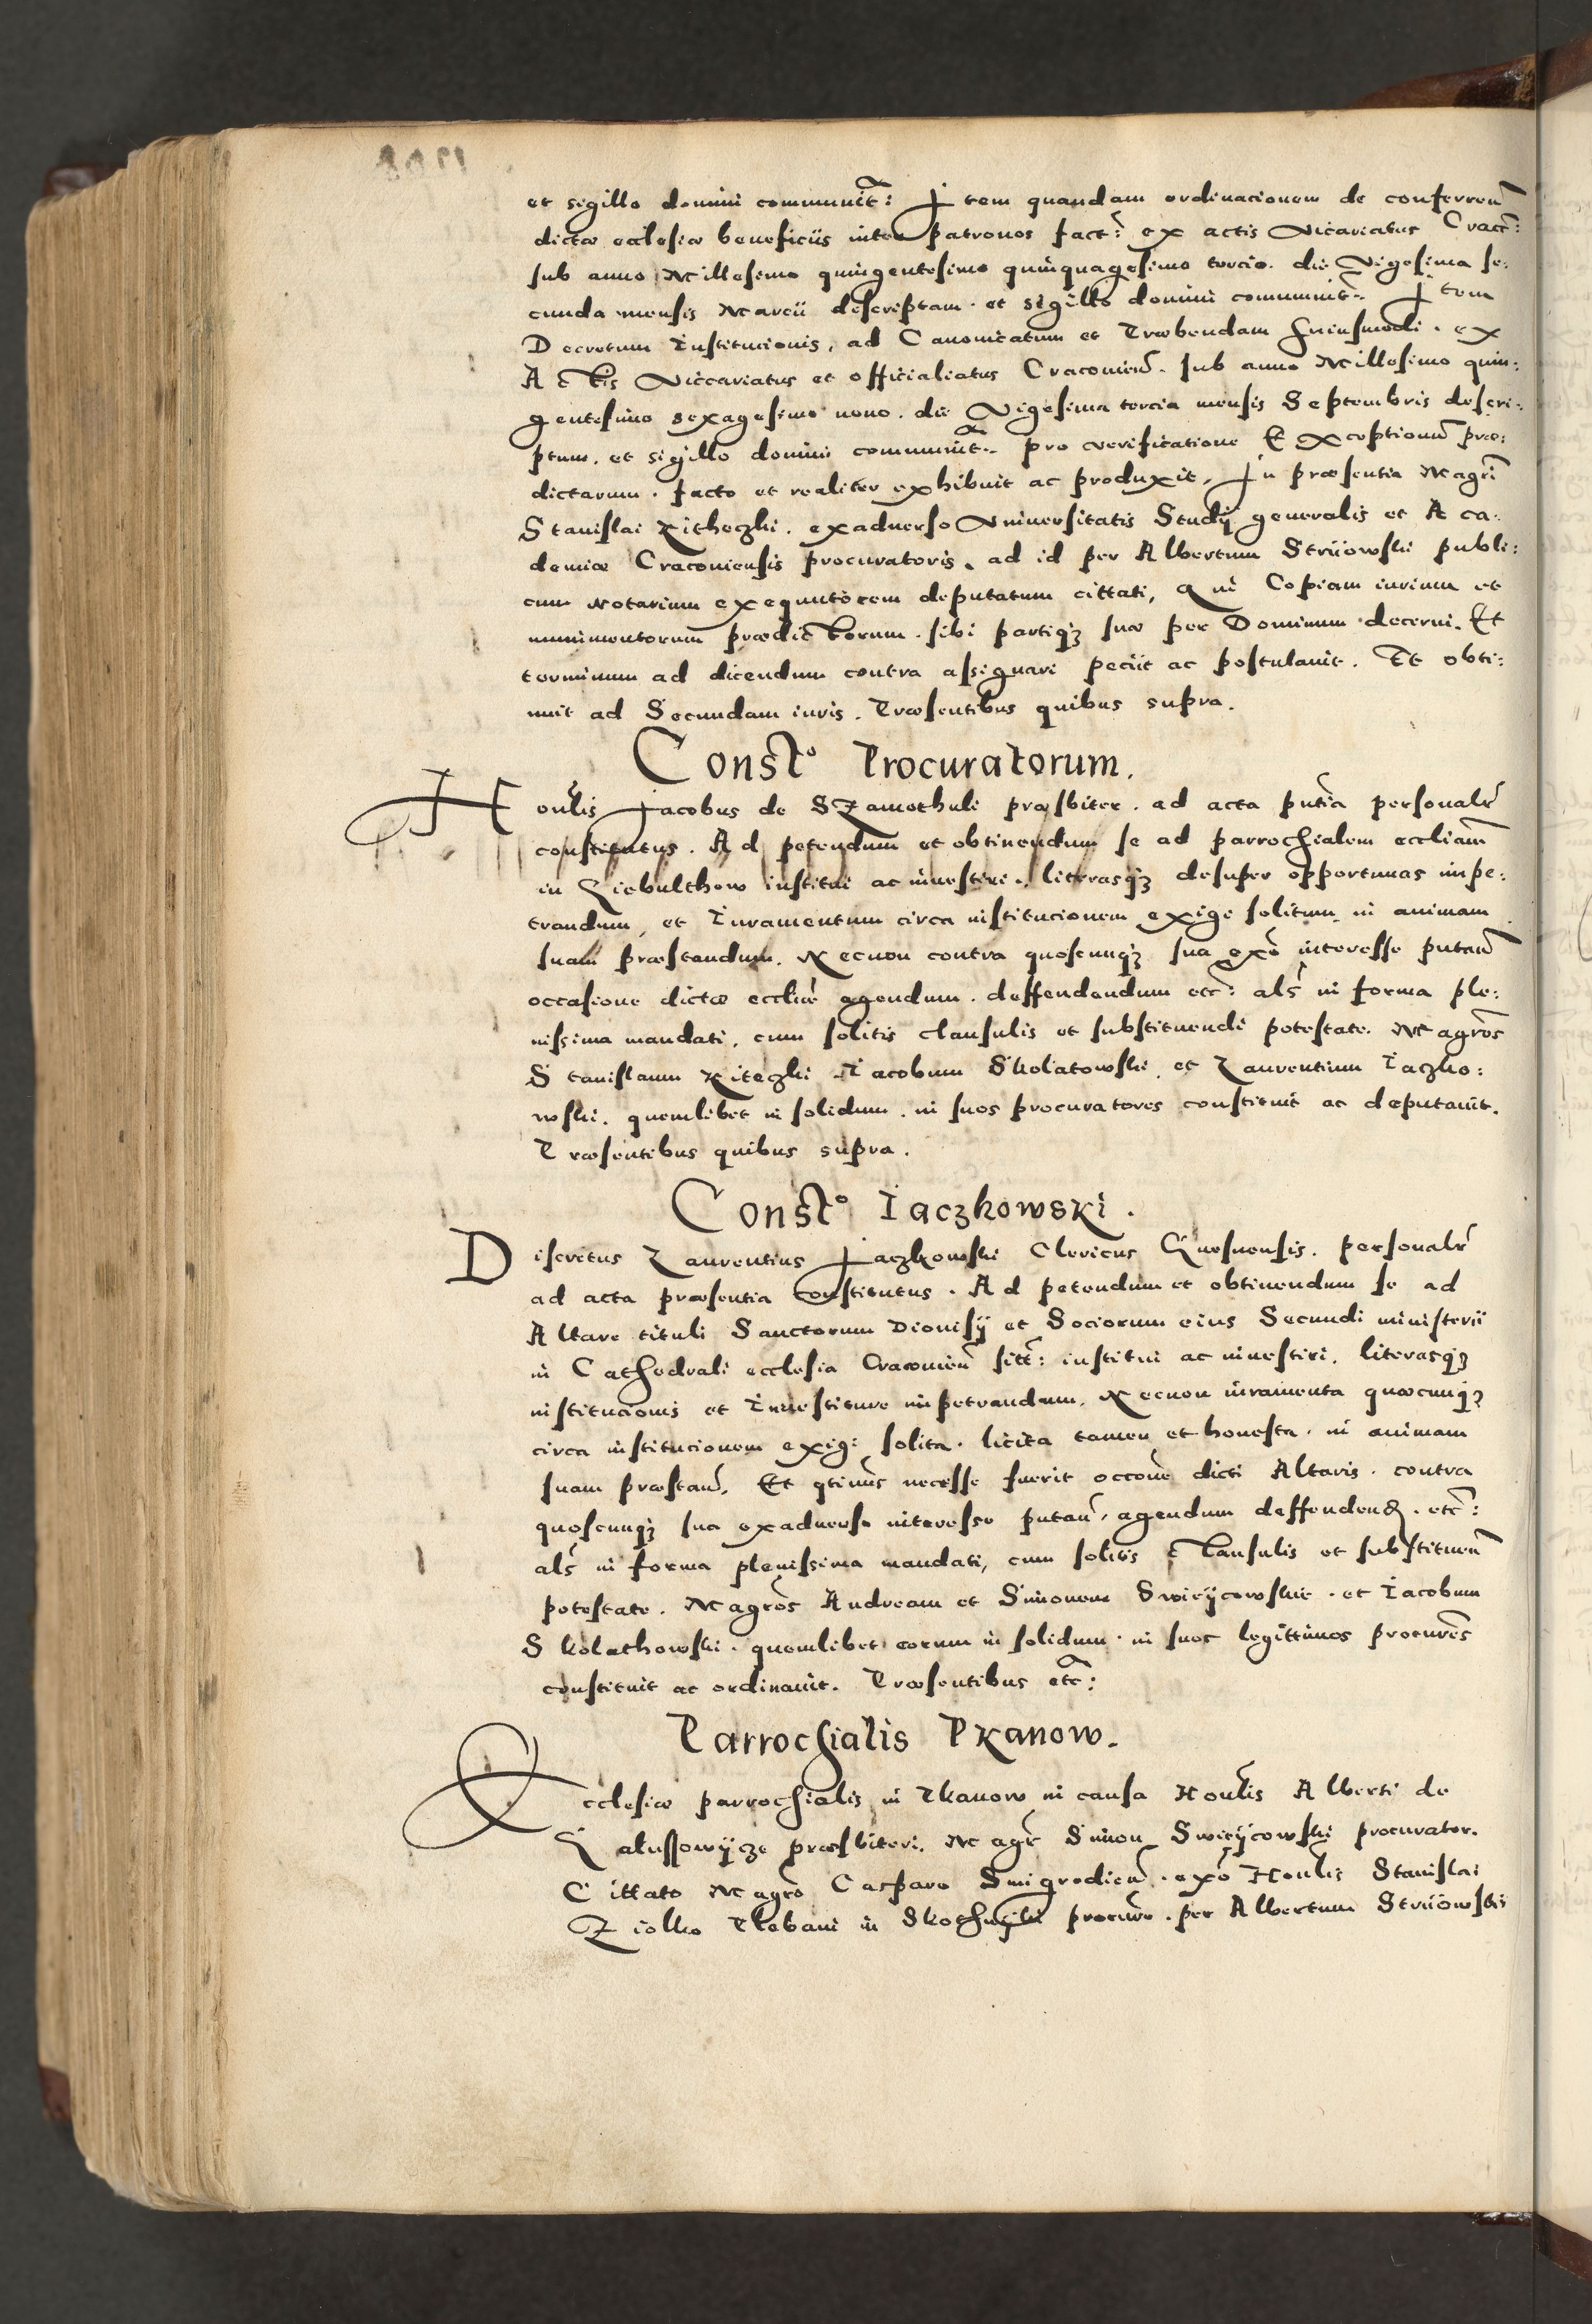 et sigillo domini communit: Item quandam ordinacionem de conferren
dictæ ecclesiæ beneficiis inter patronos fact: ex actis Vicariatus Crac:
sub anno Millesimo quingentesimo quinquagesimo tercio. die Vigesima se:
cunda mensis Marcii descriptam. et sigillo domini communit: Item
Decretum Institucionis, ad Canonicatum et Præbendam huiusmodi. ex
Actis Viccariatus et officialiatus Cracovien. sub anno Millesimo quin:
gentesimo sexagesimo nono. die Vigesima tercia mensis Septembris descri:
ptum. et sigillo domini communit: pro verificatione Exceptionum præ:
dictarum. facto et realiter exhibuit ac produxit, In præsentia Magri
Stanislai Kitheczki. exadverso Universitatis Studij generalis et Aca:
demiæ Cracoviensis procuratoris, ad id per Albertum Striiowski publi:
cum Notarium exequutorem deputatum cittati, Qui Copiam iurium et
munimentorum prædictorum. sibi partiq; suæ per Dominum decerni. Et
terminum ad dicendum contra assignari peciit ac postulavit. Et obti:
nuit ad Secundam iuris. Præsentibus quibus supra.
Const.o Procuratorum.
Honlis Jacobus de SZamothuli præsbiter. ad acta pntia personalr
constitutus. Ad petendum et obtinendum se ad parrochialem eccliam
in Liebulthow institui ac investiri. literasq; desuper opportunas impe:
trandum, et Iuramentum circa institucionem exigi solitum in animam
suam præstandum. Necnon contra quoscunq; sua exo interesse putan
occasione dictæ eccliæ agendum. deffendendum etc: als in forma ple:
nissima mandati, cum solitis clausulis et substituendi potestate. Magros
Stanislaum Kiteczki Iacobum Skolatowski et Laurentium Iaczko:
wski. quemlibet in solidum. in suos procuratores constituit ac deputavit.
Præsentibus quibus supra.
Const.o Iaczkowski.
Discretus Laurentius Jaczkowski Clericus Gnesnensis. personalr
ad acta præsentia constitutus. Ad petendum et obtinendum se ad
Altare tituli Sanctorum Dionisij et Sociorum eius Secundi ministerii
in Cathedrali ecclesia Cracovien sitt: institui ac investiri. literasq;
institucionis et Investiture impetrandum. Necnon iuramenta quæcunq;
circa institucionem exigi solita. licita tamen et honesta. in animam
suam præstan. Et qtinus necesse fuerit occone dicti Altaris. contra
quoscunq; sua exadverso interesse putan, agendum deffenden. etc:
als in forma plenissima mandati, cum solitis clausulis et substituen
potestate. Magros Andream et Simonem Swieijcowskie. et Iacobum
Skolathowski. quemlibet eorum in solidum. in suos legittimos procures
constituit ac ordinavit. Præsentibus etc:
Parrochialis Pkanow.
Ecclesiæ parrochialis in Pkanow in causa Honlis Alberti de
Galussowijcze præsbiteri. Magr Simon Swieijcowski procurator.
Cittato Magro Casparo Smigrodicu. exo Honlis Stanislai
Ziolko Plebani in procure. per Albertum Striiowski